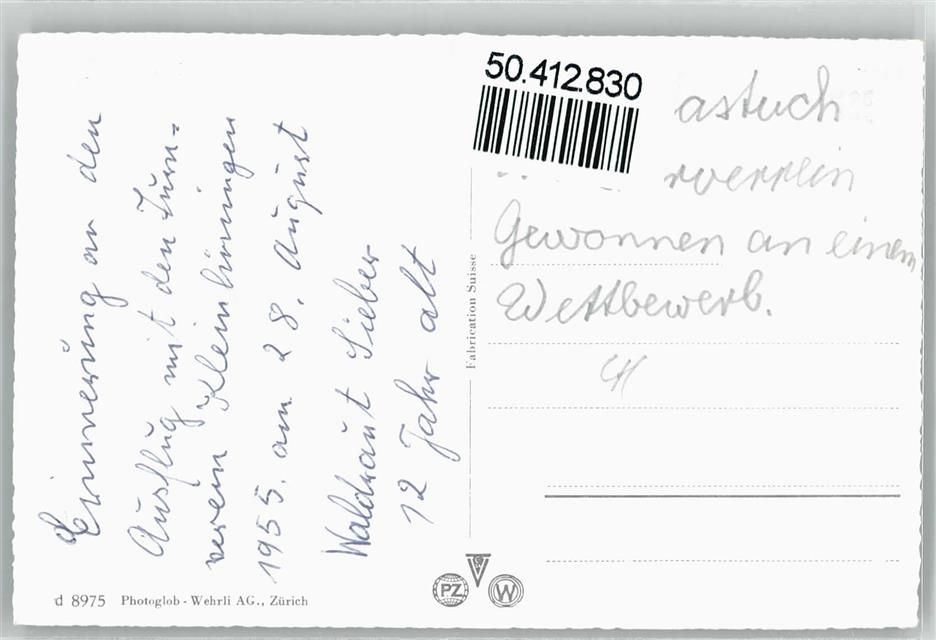 Erinnerung an den
Ausflug mit den Turn=
verein Kleinhüningen
1955. am 28. August
Waldraut Sieber
12 Jahr alt
d 8975 Photoglob - Wehrli AG., Zürich
Fabrication Suisse
50.412.830
astuch
Gewonnen an einem
Wettbewerb.
PZ
W